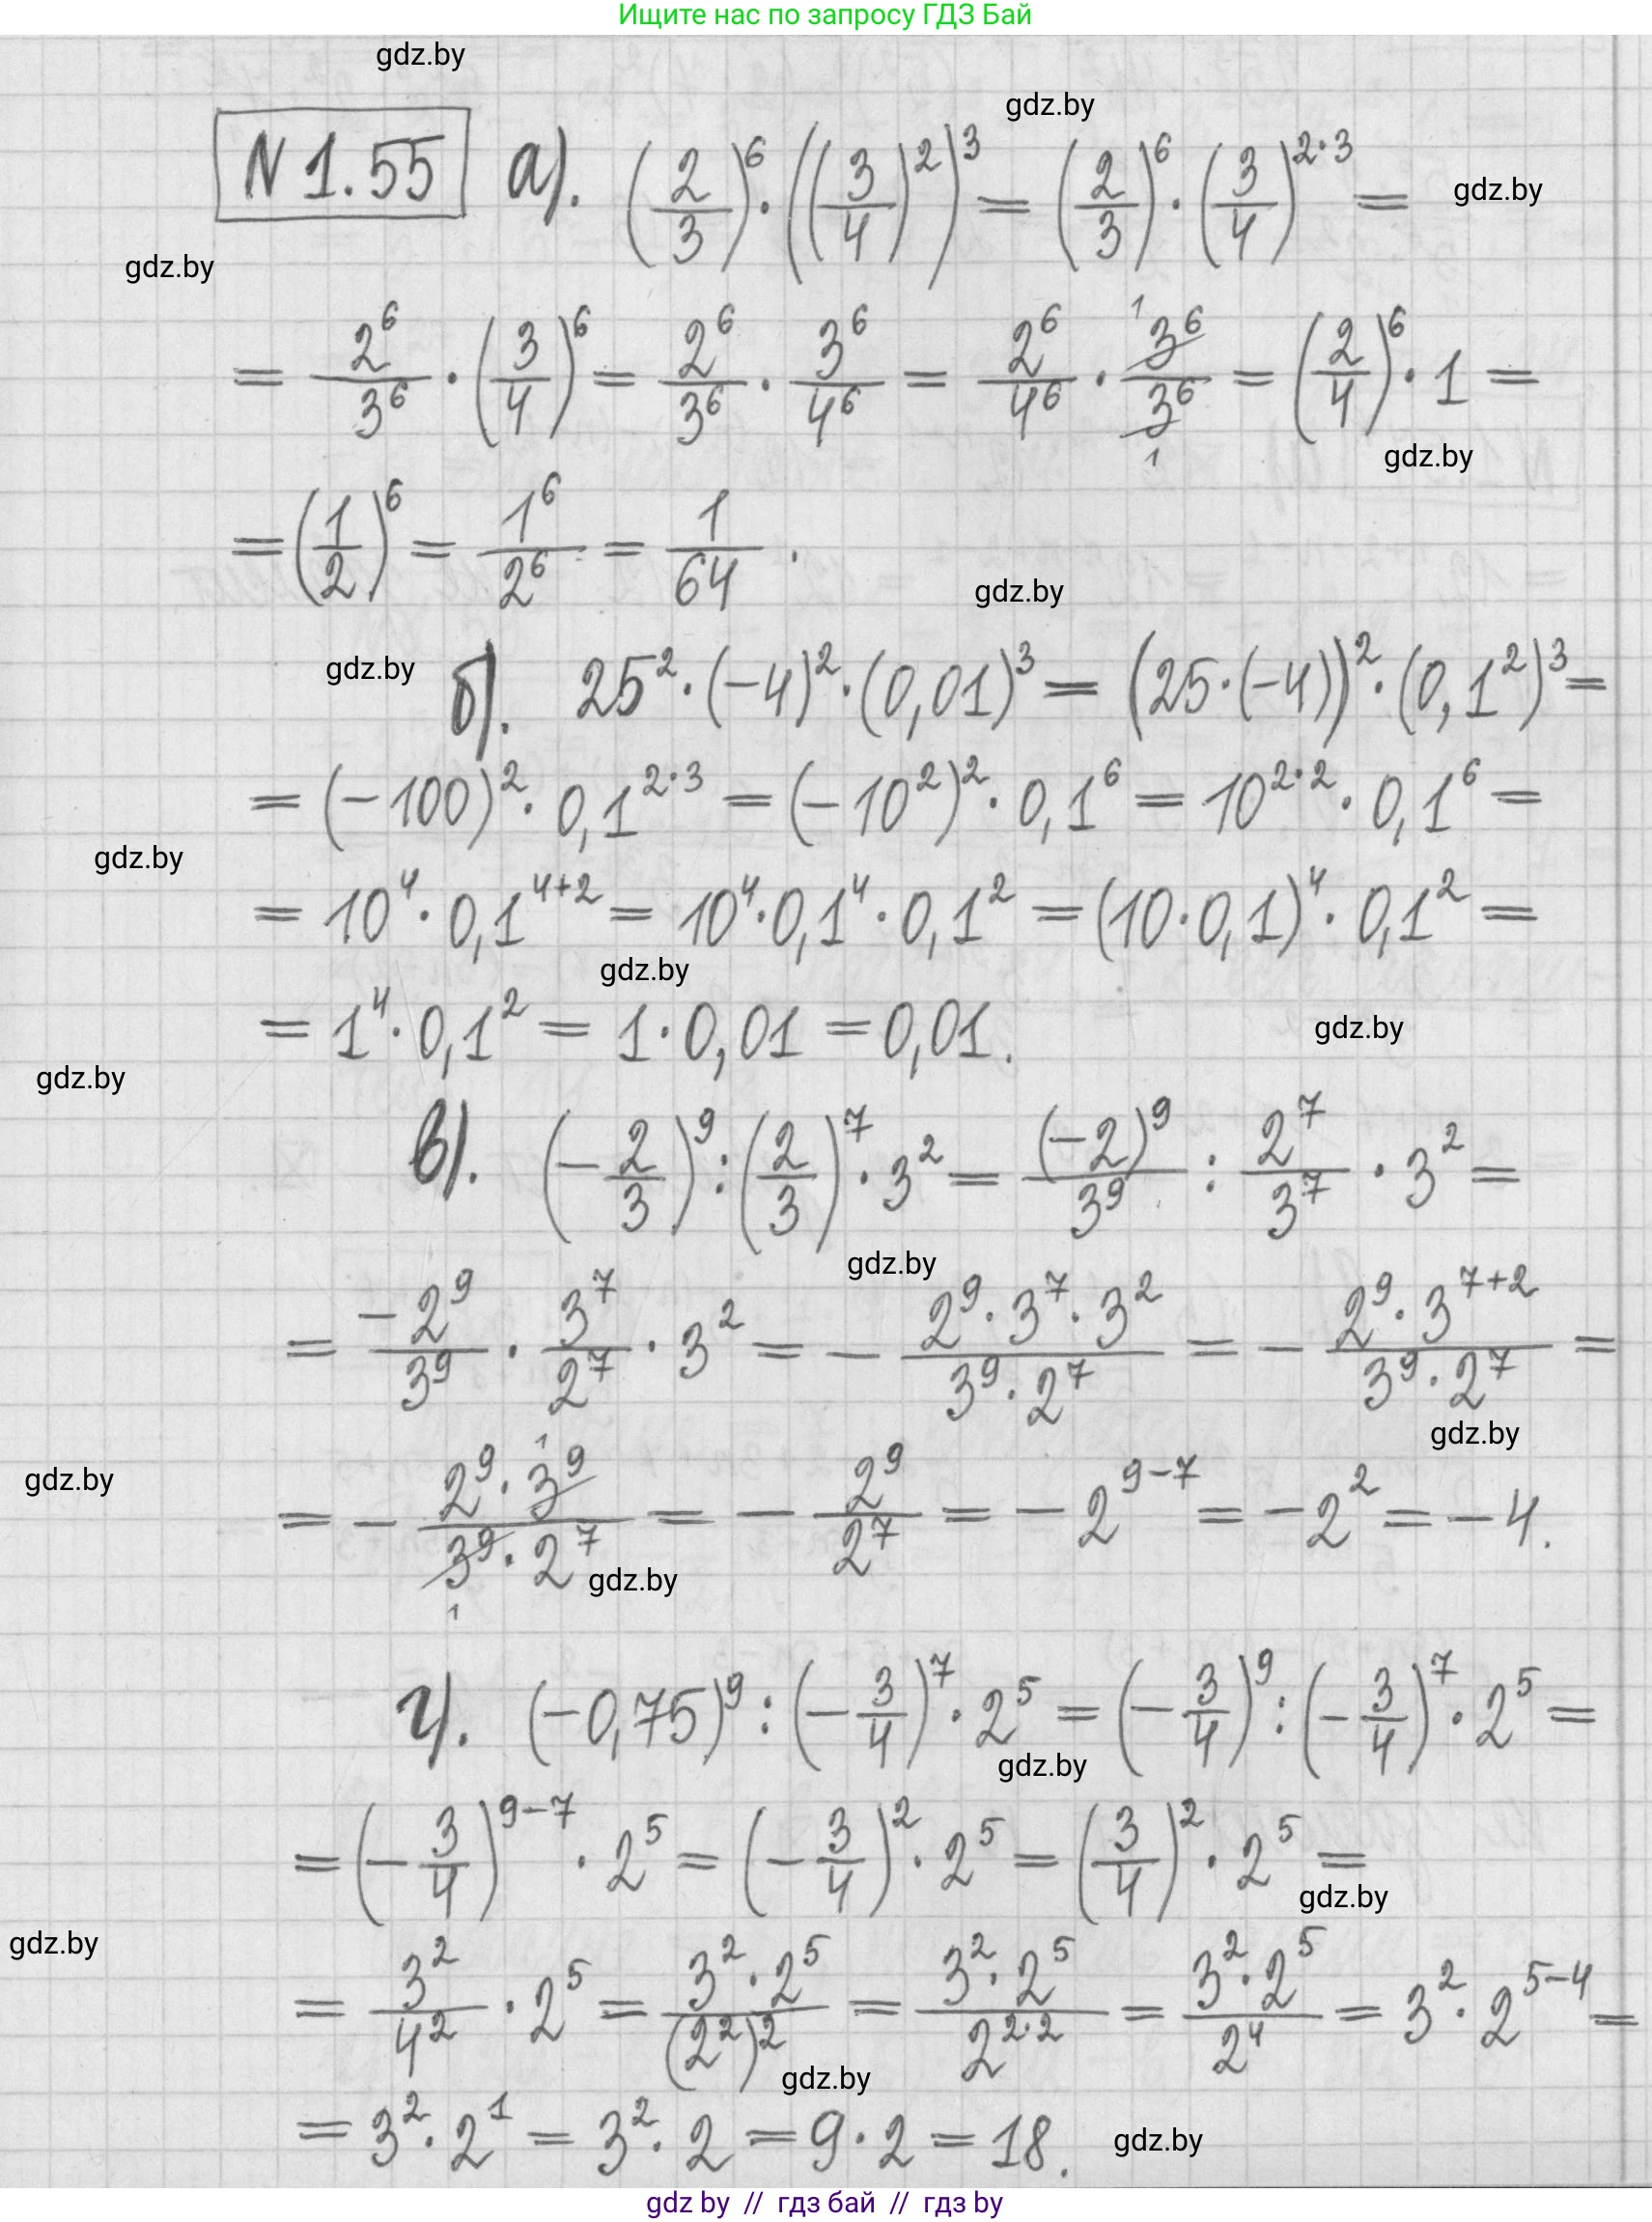 Ищите нас по запросу ГДЗ Бай
gdz.by
gdz.by
N 1.55 а). (2/3)^6 · ((3/4)^2)^3 = (2/3)^6 · (3/4)^(2·3) =
gdz.by
gdz.by
= 2^6/3^6 · (3/4)^6 = 2^6/3^6 · 3^6/4^6 = 2^6/4^6 · 3^6/3^6 = (2/4)^6 · 1 =
1
1
gdz.by
= (1/2)^6 = 1^6/2^6 = 1/64 .
gdz.by
gdz.by
б). 25^2 · (-4)^2 · (0,01)^3 = (25·(-4))^2 · (0,1^2)^3 =
= (-100)^2 · 0,1^(2·3) = (-10^2)^2 · 0,1^6 = 10^(2·2) · 0,1^6 =
gdz.by
= 10^4 · 0,1^(4+2) = 10^4 · 0,1^4 · 0,1^2 = (10·0,1)^4 · 0,1^2 =
gdz.by
= 1^4 · 0,1^2 = 1 · 0,01 = 0,01.
gdz.by
gdz.by
в). (-2/3)^9 : (2/3)^7 · 3^2 = (-2)^9/3^9 : 2^7/3^7 · 3^2 =
gdz.by
= -2^9/3^9 · 3^7/2^7 · 3^2 = - (2^9 · 3^7 · 3^2)/(3^9 · 2^7) = - (2^9 · 3^(7+2))/(3^9 · 2^7) =
gdz.by
gdz.by
= - (2^9 · 3^9)/(3^9 · 2^7) = - 2^9/2^7 = - 2^(9-7) = -2^2 = -4.
1
1
gdz.by
г). (-0,75)^9 : (-3/4)^7 · 2^5 = (-3/4)^9 : (-3/4)^7 · 2^5 =
gdz.by
= (-3/4)^(9-7) · 2^5 = (-3/4)^2 · 2^5 = (3/4)^2 · 2^5 =
gdz.by
gdz.by
= 3^2/4^2 · 2^5 = (3^2 · 2^5)/(2^2)^2 = (3^2 · 2^5)/2^(2·2) = (3^2 · 2^5)/2^4 = 3^2 · 2^(5-4) =
gdz.by
= 3^2 · 2^1 = 3^2 · 2 = 9 · 2 = 18.
gdz.by
gdz by // гдз бай // гдз by